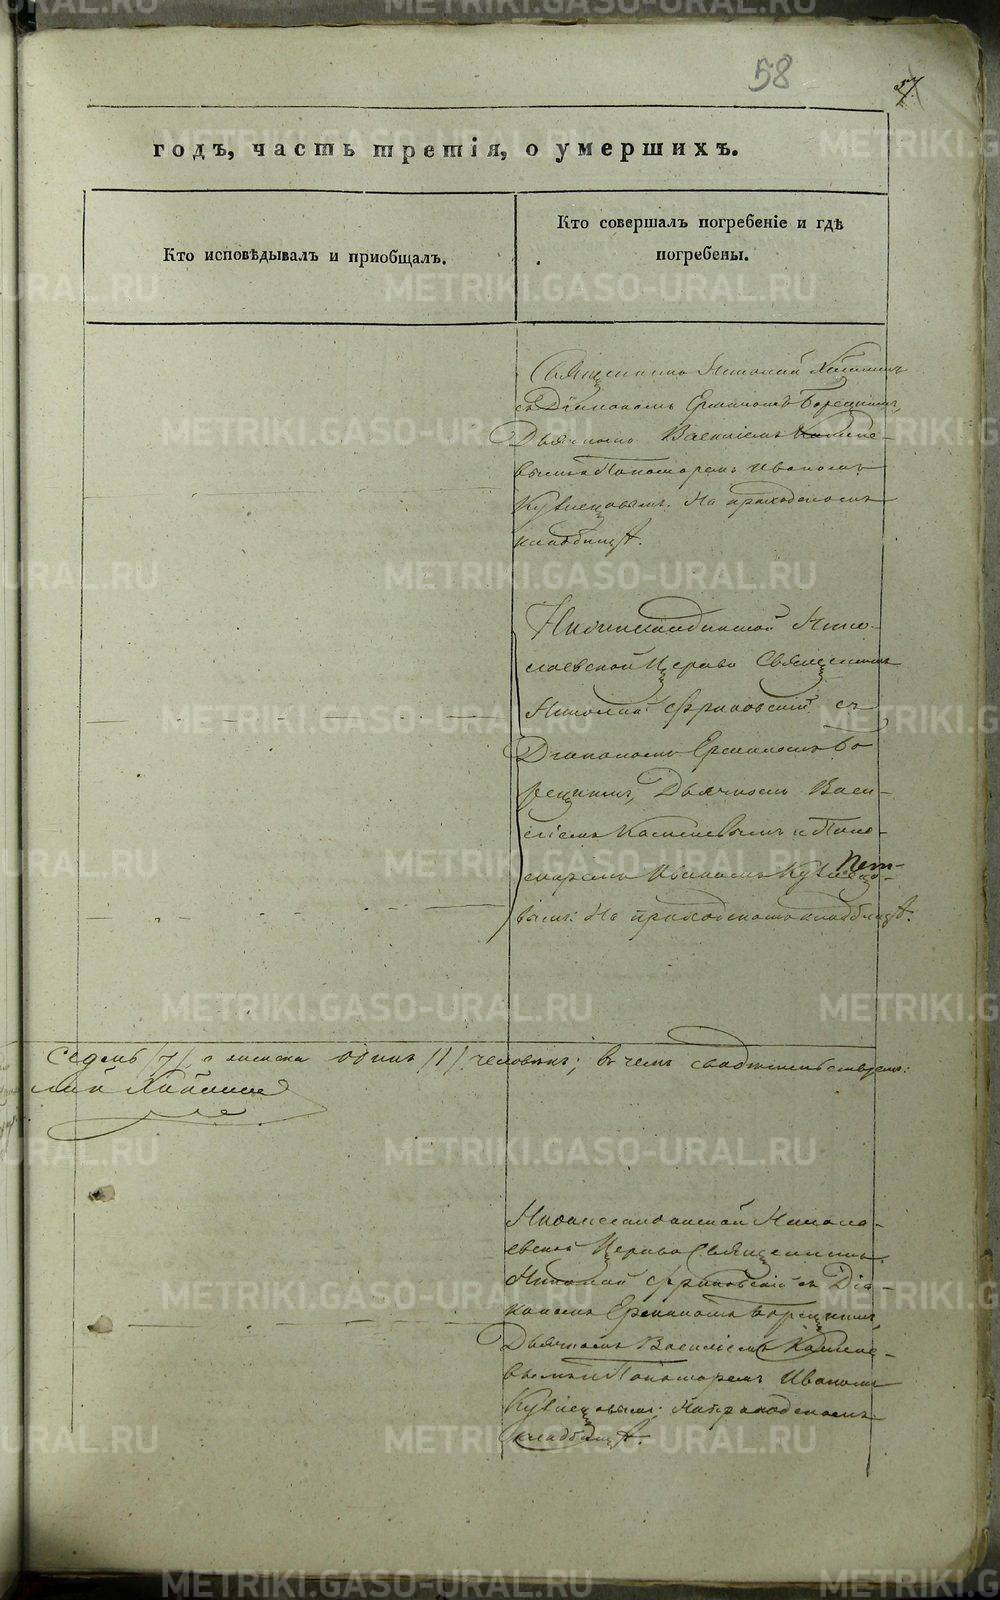 58
57
годъ, часть третія, о умершихъ.
Кто исповѣдывалъ и приобщалъ.
Кто совершалъ погребеніе и гдѣ
погребены.
Священникъ Николай
съ Діакономъ Ермиломъ Борецкимъ,
Дьячкомъ Василіемъ Камене-
вымъ и Пономаремъ Иваномъ
Кузнецовымъ. На приходскомъ
кладбищѣ.
Нико-
лаевской Церкви Священникъ
Николай съ
Діакономъ Ермиломъ Бо
рецкимъ, Дьячкомъ Васи-
ліемъ Каменевымъ и Поно-
маремъ Иваномъ
вымъ: На приходскомъ кладбищѣ.
Седемь /7/, а женска одинъ /1/ человѣкъ; въ чемъ свидѣтельствуемъ:
лай
Никола-
евской Церкви Священникъ
Николай съ Діа-
кономъ Ермиломъ Борецкимъ,
Дьячкомъ Василіемъ Камене-
вымъ и Пономаремъ Иваномъ
Кузнецовымъ: На приходскомъ
кладбищѣ.
METRIKI.GASO-URAL.RU